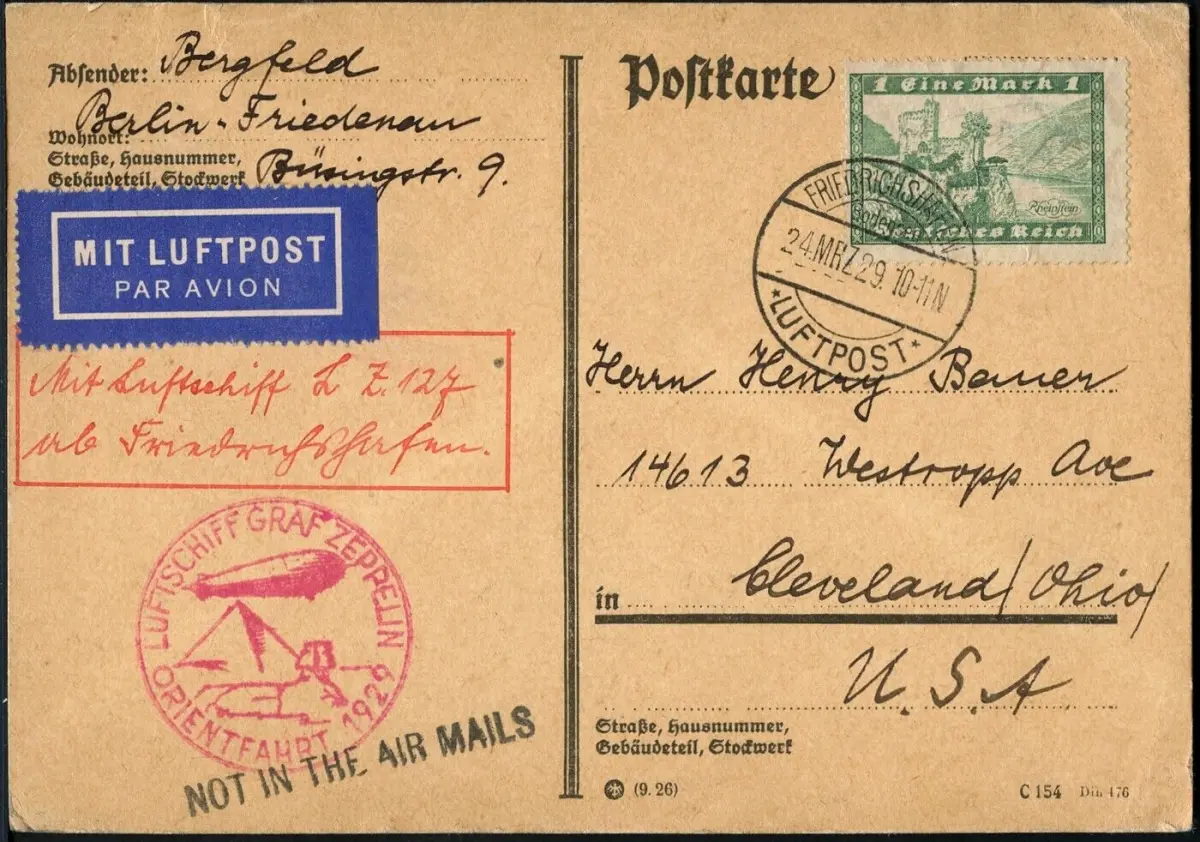 Absender: Bergfeld
Berlin-Friedenau
Wohnort:
Straße, Hausnummer,
Gebäudeteil, Stockwerk Büsingstr. 9.
MIT LUFTPOST
PAR AVION
Mit Luftschiff L Z. 127
ab Friedrichshafen.
LUFTSCHIFF GRAF ZEPPELIN
ORIENTFAHRT 1929
NOT IN THE AIR MAILS
Postkarte
1 Eine Mark 1
Rheinstein
Deutsches Reich
FRIEDRICHSHAFEN
24.MRZ.29. 10-11N
*LUFTPOST*
Herrn Henry Bauer
14613 Westropp Ave
in Cleveland/Ohio/
U.S.A
Straße, Hausnummer,
Gebäudeteil, Stockwerk
(9.26)
C 154 Din 476